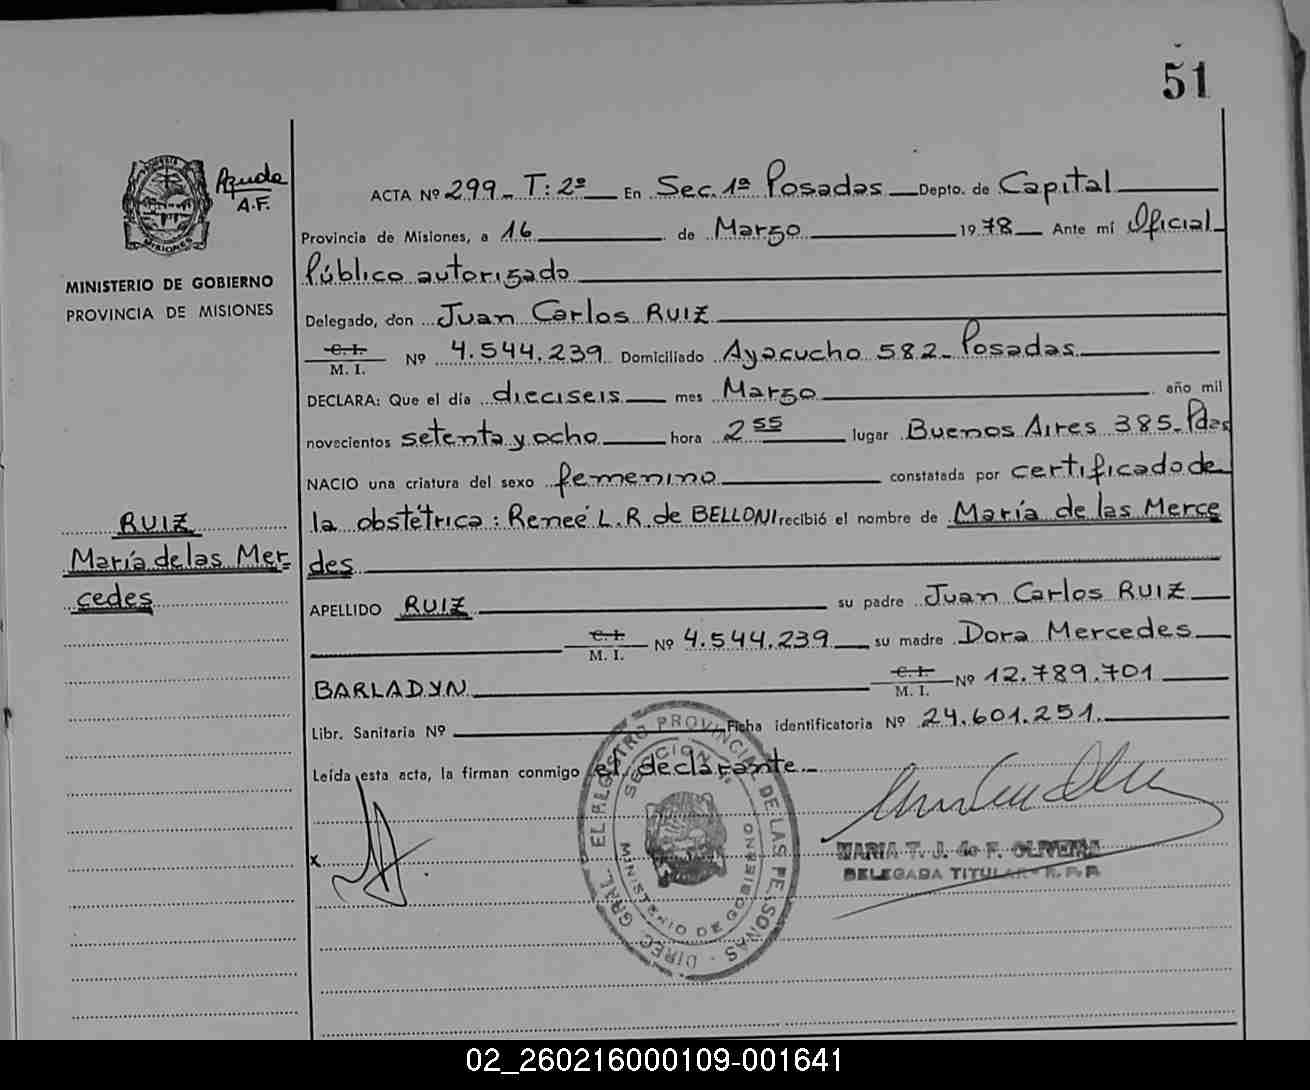 51
Ayuda
A.F.
MISIONES
MINISTERIO DE GOBIERNO
PROVINCIA DE MISIONES
ACTA Nº 299_ T: 2º En Sec. 1ª Posadas Depto. de Capital
Provincia de Misiones, a 16 de Marzo 1978 Ante mí Oficial
Público autorizado
Delegado, don Juan Carlos RUIZ
C. I.
M. I. Nº 4.544.239 Domiciliado Ayacucho 582_ Posadas
DECLARA: Que el día dieciseis mes Marzo año mil
novecientos setenta y ocho hora 2 55 lugar Buenos Aires 385_ Pdas
NACIO una criatura del sexo femenino constatada por certificado de
la obstétrica: Reneé L.R. de BELLONI recibió el nombre de María de las Merce
des
RUIZ
María de las Mer=
cedes
APELLIDO RUIZ su padre Juan Carlos RUIZ
C. I.
M. I. Nº 4.544.239 su madre Dora Mercedes
BARLADYN C. I.
M. I. Nº 12.789.701
Libr. Sanitaria Nº Ficha identificatoria Nº 24.601.251.
Leída esta acta, la firman conmigo el declarante._
x
DIREC. GRAL. EL REGISTRO PROVINCIAL DE LAS PERSONAS
SECCION
MINISTERIO DE GOBIERNO
MARIA T. J. de F. OLIVEIRA
DELEGADA TITULAR - R. P. P.
02_260216000109-001641